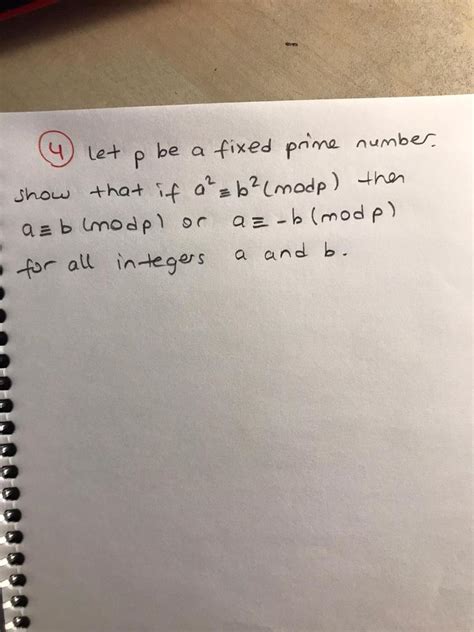 4 Let p be a fixed prime number.
show that if a² ≡ b² (modp) then
a ≡ b (modp) or a ≡ -b (modp)
for all integers a and b.